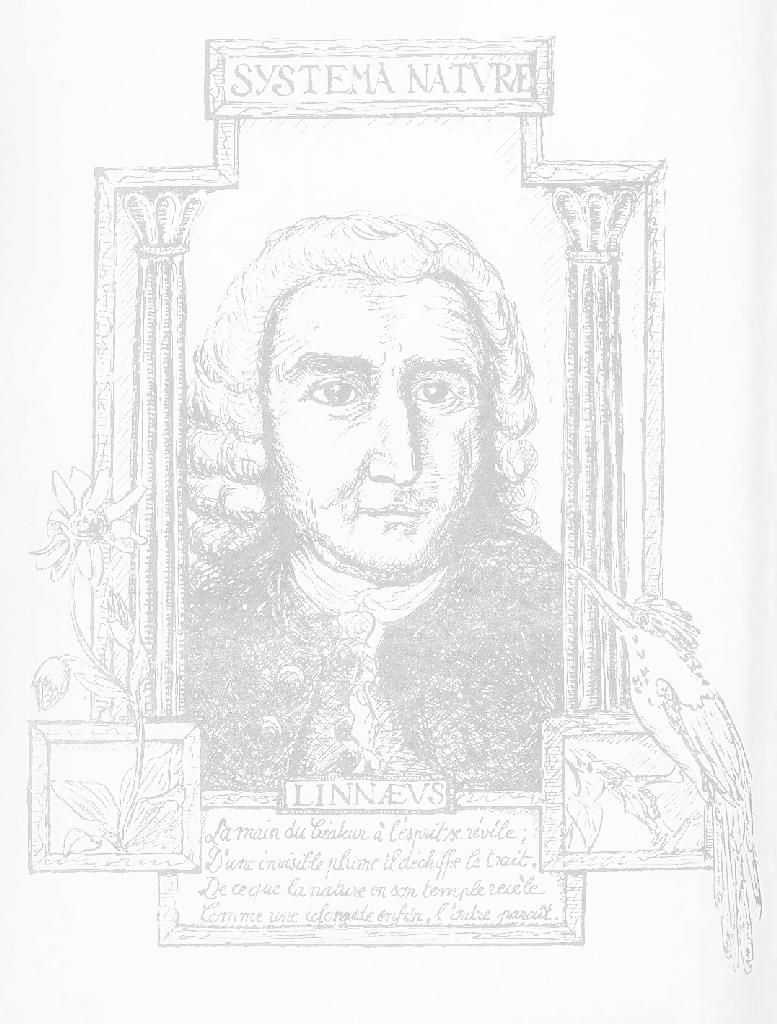 SYSTEMA NATVRE
LINNÆVS
La main du Créateur à l'esprit se révèle ;
D'une invisible plume il déchiffe le trait.
De ce que la nature en son temple recèle
Comme une colonnade enfin, l'ordre paraît.